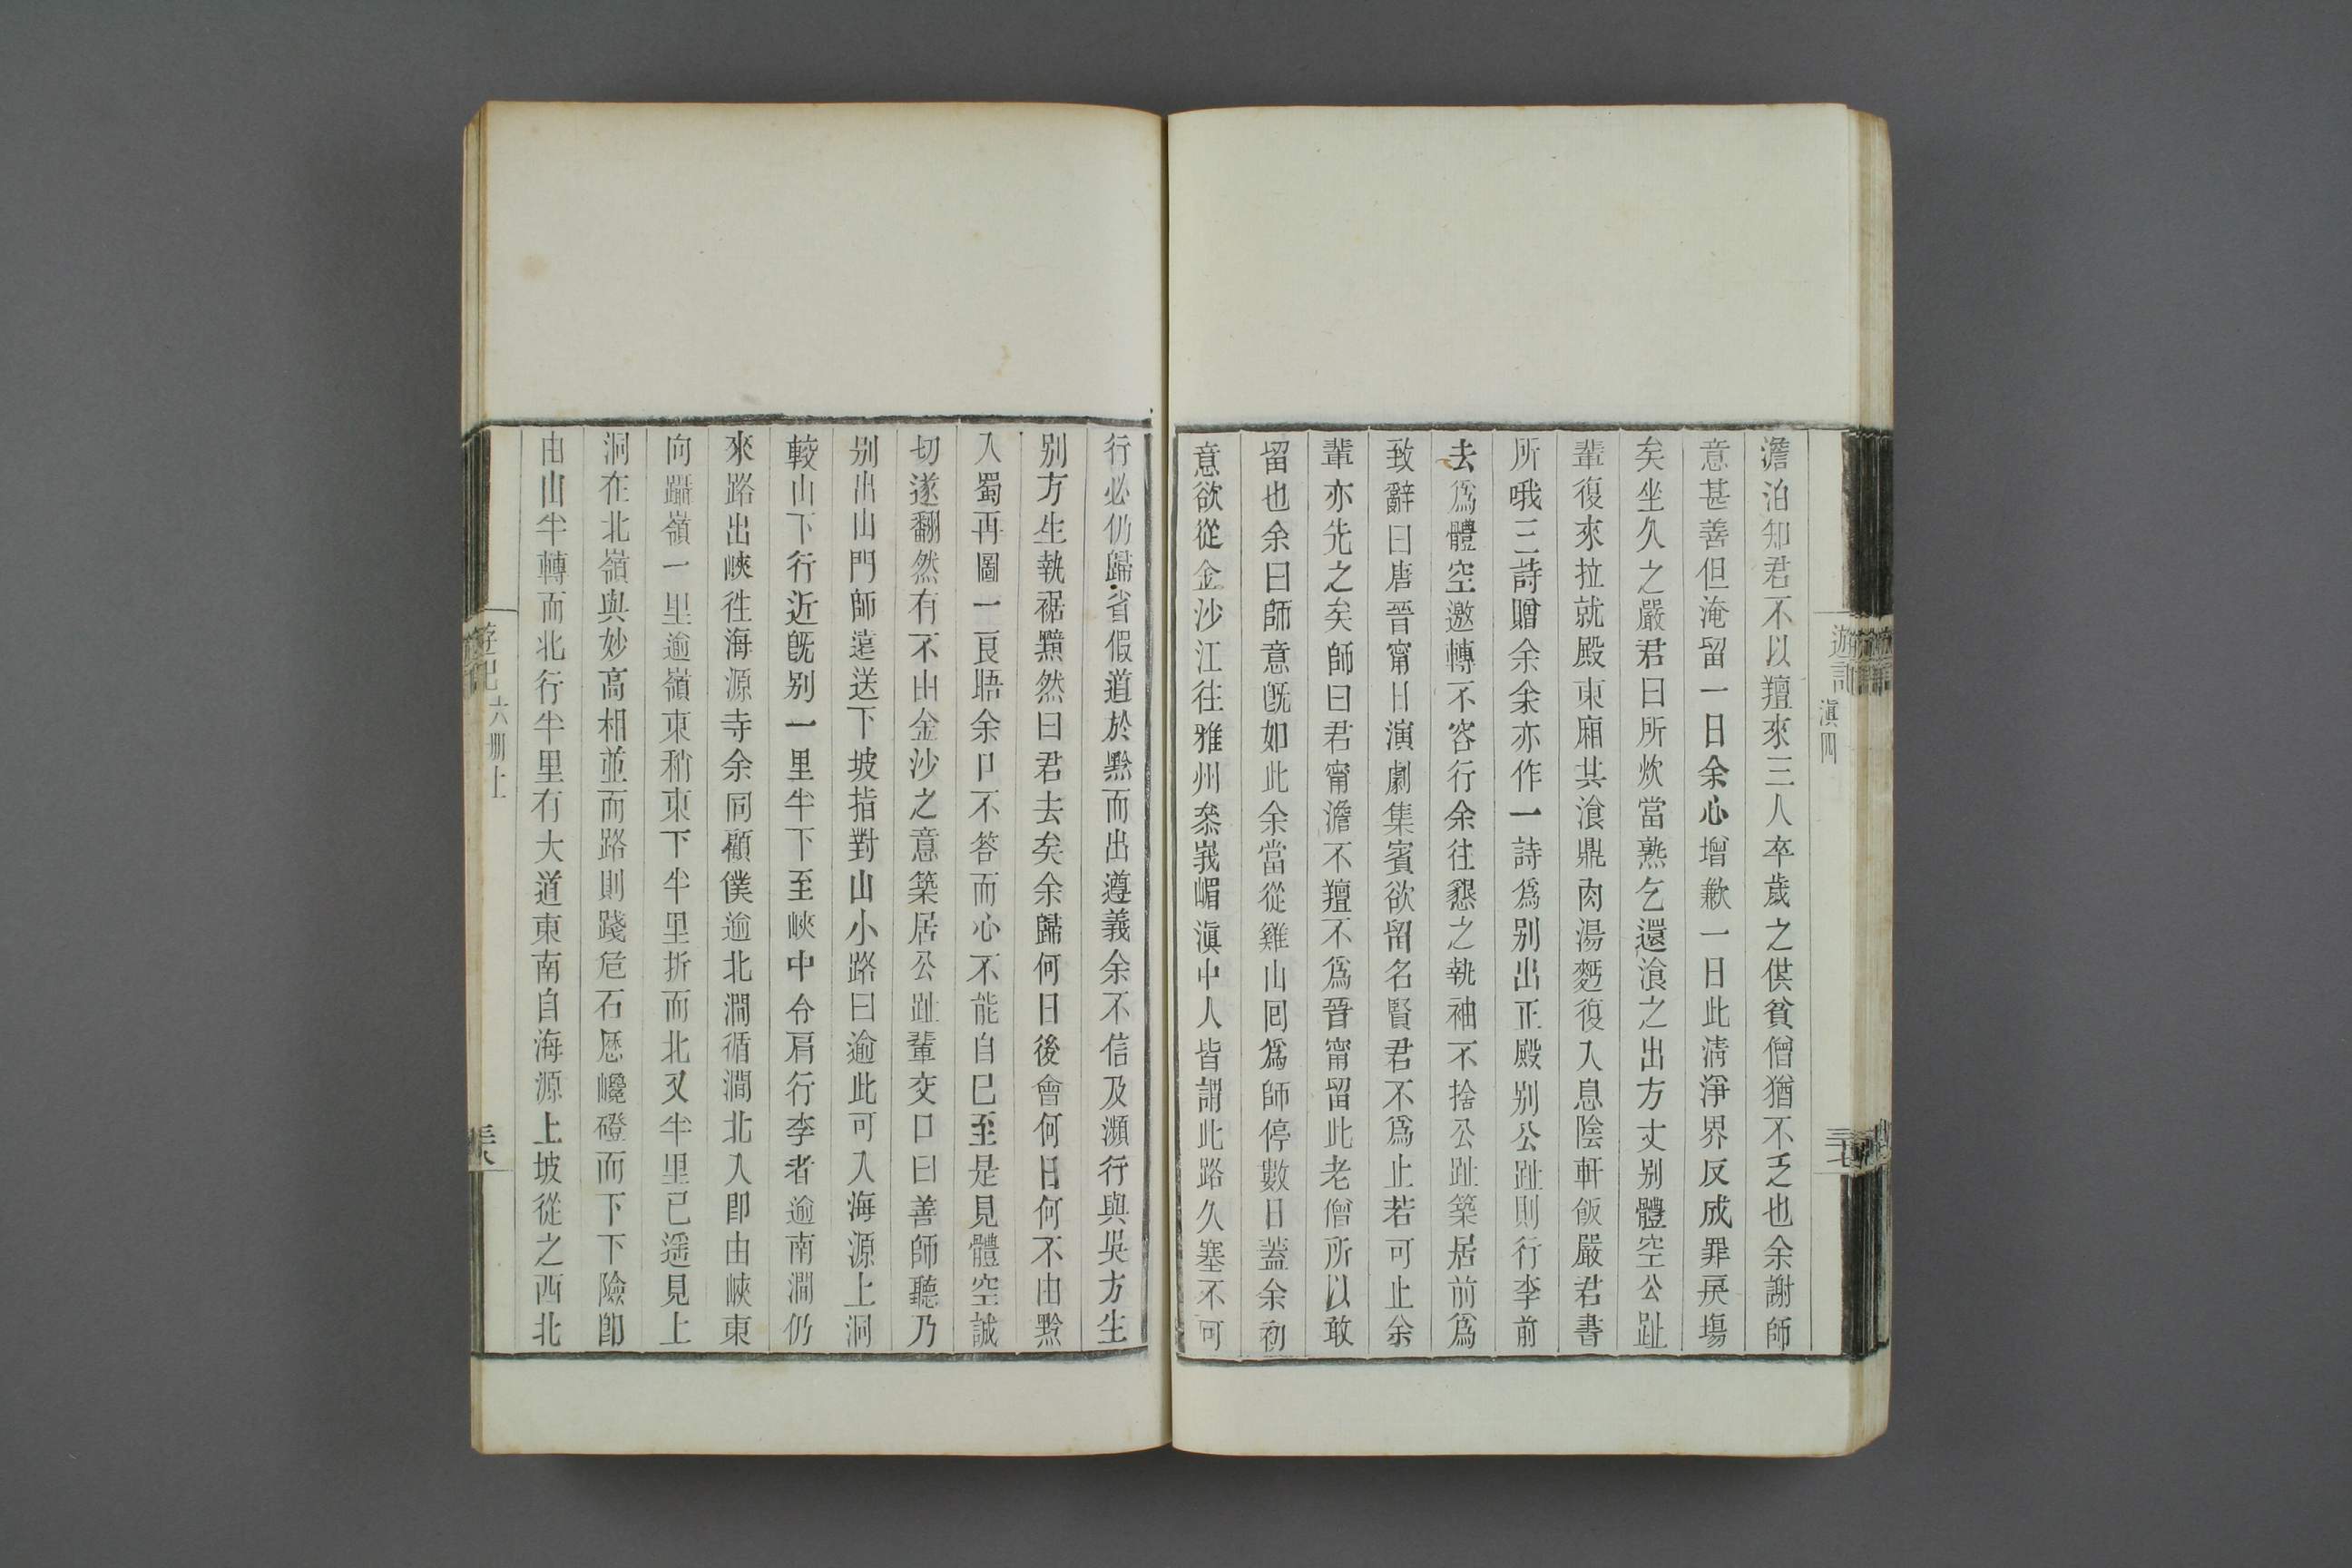 遊記
滇四
三七
澹泊知君不以羶來三人卒歲之供貧僧猶不乏也余謝師
意甚善但淹留一日余心增歉一日此淸淨界反成罪戾塲
矣坐久之嚴君曰所炊當熟乞還飡之出方丈别體空公趾
輩復來拉就殿東廂共飡鼎肉湯麪復入息陰軒飯嚴君書
所哦三詩贈余余亦作一詩爲别出正殿别公趾則行李前
去爲體空邀轉不容行余往懇之執袖不捨公趾築居前爲
致辭曰唐晉甯日演劇集賓欲留名賢君不爲止若可止余
輩亦先之矣師曰君甯澹不羶不爲晉甯留此老僧所以敢
留也余曰師意旣如此余當從雞山囘爲師停數日蓋余初
意欲從金沙江往雅州叅峩嵋滇中人皆謂此路久塞不可
行必仍歸省假道於黔而出遵義余不信及瀕行與吳方生
别方生執裾黯然曰君去矣余歸何日後會何日何不由黔
入蜀再圖一良晤余口不答而心不能自已至是見體空誠
切遂翻然有不由金沙之意築居公趾輩交口曰善師聽乃
别出山門師遠送下坡指對山小路曰逾此可入海源上洞
較山下行近旣别一里半下至峽中令肩行李者逾南澗仍
來路出峽徃海源寺余同顧僕逾北澗循澗北入卽由峽東
向躡嶺一里逾嶺東稍東下半里折而北又半里已遥見上
洞在北嶺與妙高相並而路則踐危石歷巉磴而下下險卽
由山半轉而北行半里有大道東南自海源上坡從之西北
遊記
六册上
三八